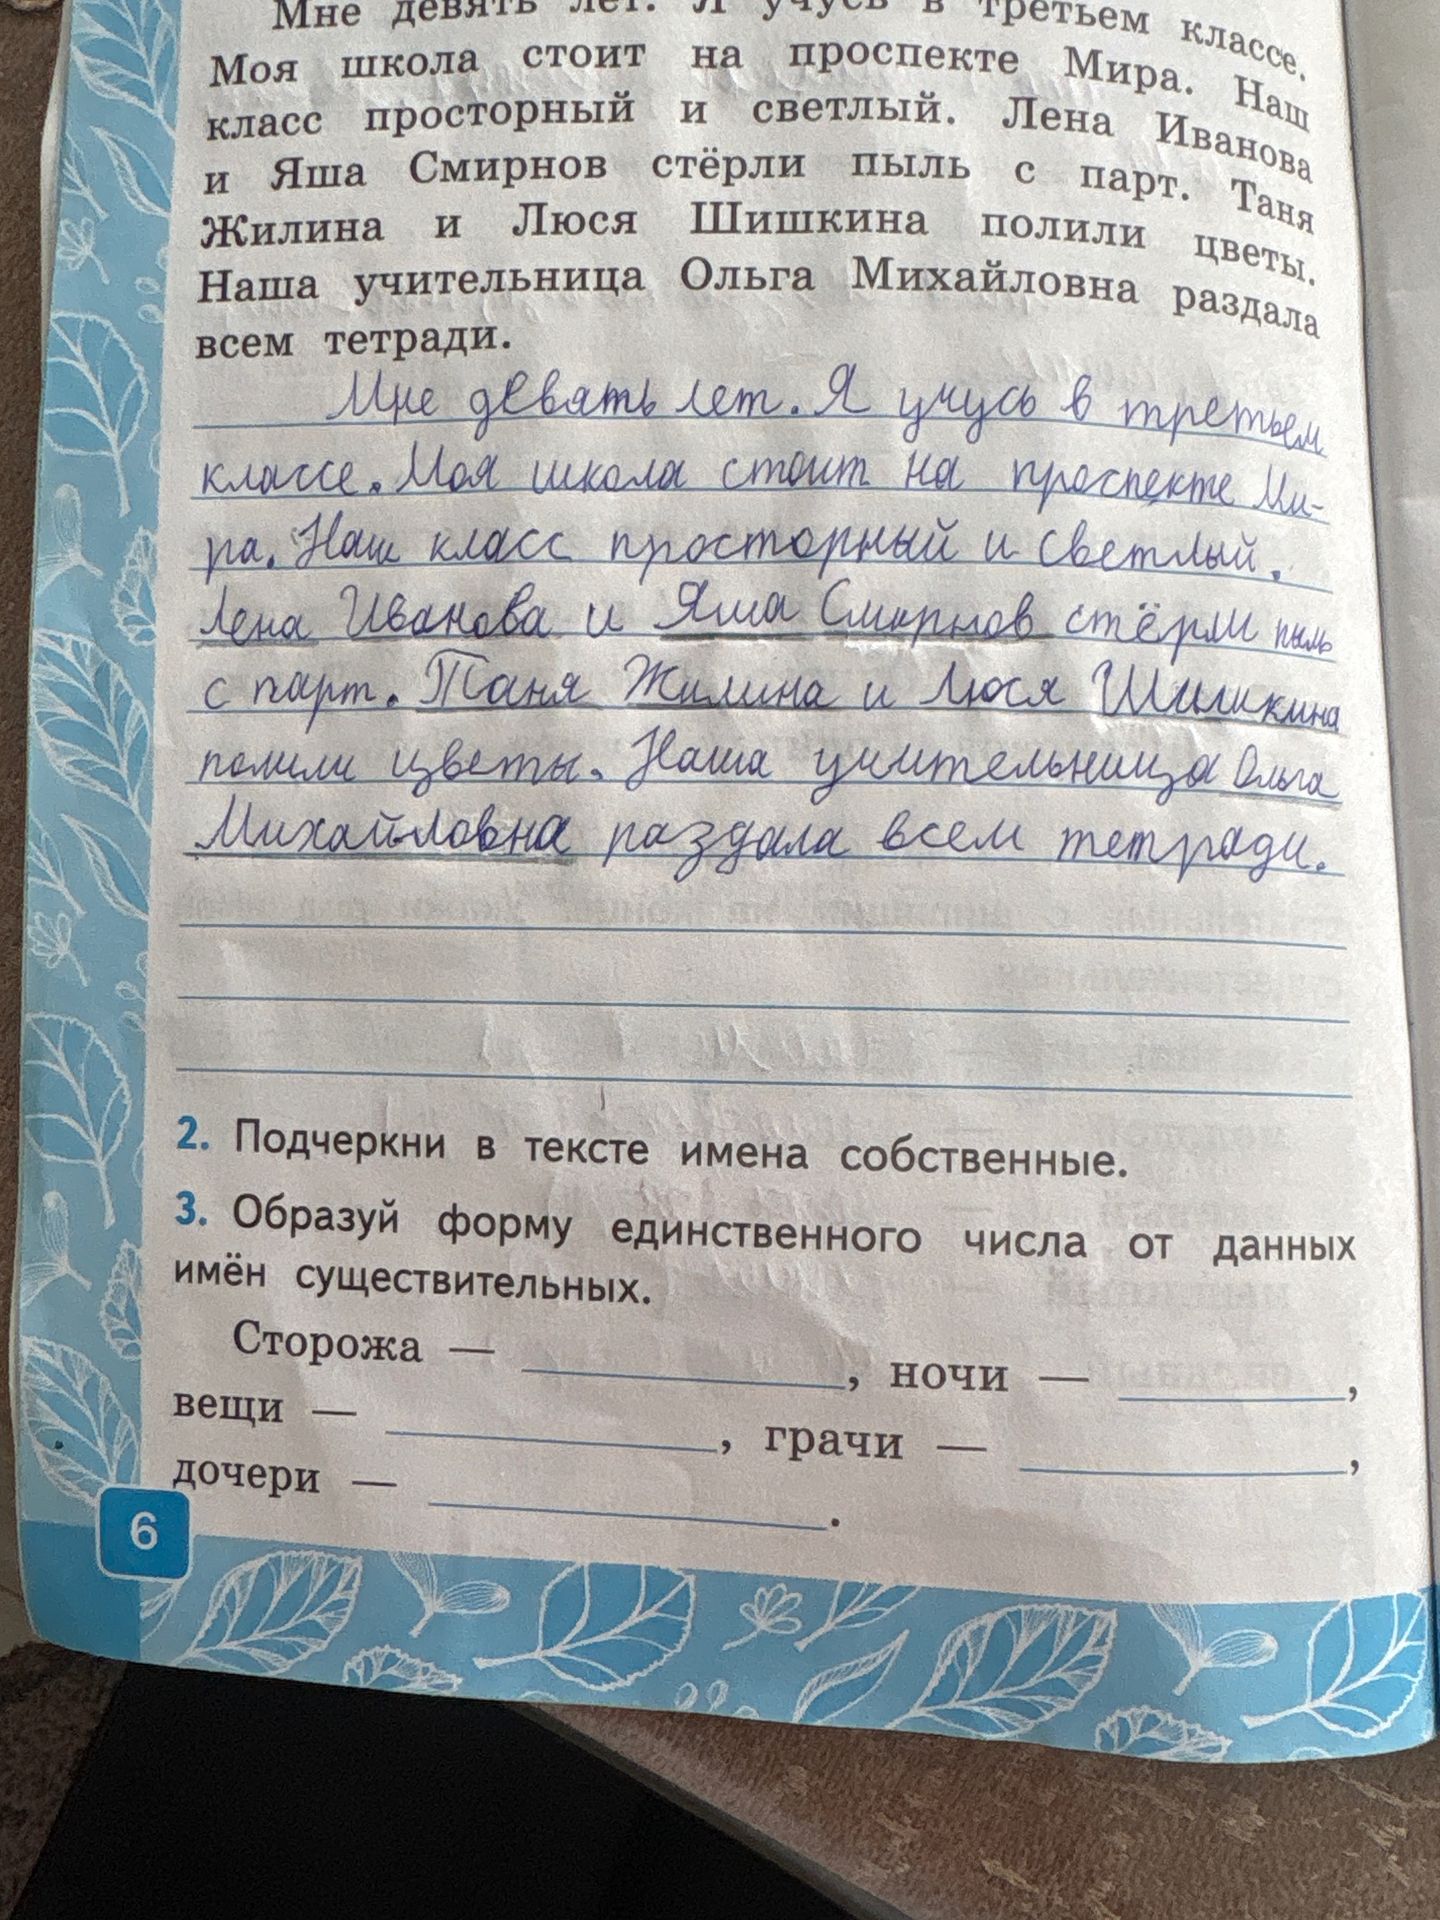 Мне девять лет. Я учусь в третьем классе.
Моя школа стоит на проспекте Мира. Наш
класс просторный и светлый. Лена Иванова
и Яша Смирнов стёрли пыль с парт. Таня
Жилина и Люся Шишкина полили цветы.
Наша учительница Ольга Михайловна раздала
всем тетради.
Мне девять лет. Я учусь в третьем
классе. Моя школа стоит на проспекте Ми-
ра. Наш класс просторный и светлый.
Лена Иванова и Яша Смирнов стёрли пыль
с парт. Таня Жилина и Люся Шишкина
полили цветы. Наша учительница Ольга
Михайловна раздала всем тетради.
2. Подчеркни в тексте имена собственные.
3. Образуй форму единственного числа от данных
имён существительных.
Сторожа — , ночи — ,
вещи — , грачи — ,
дочери — .
6